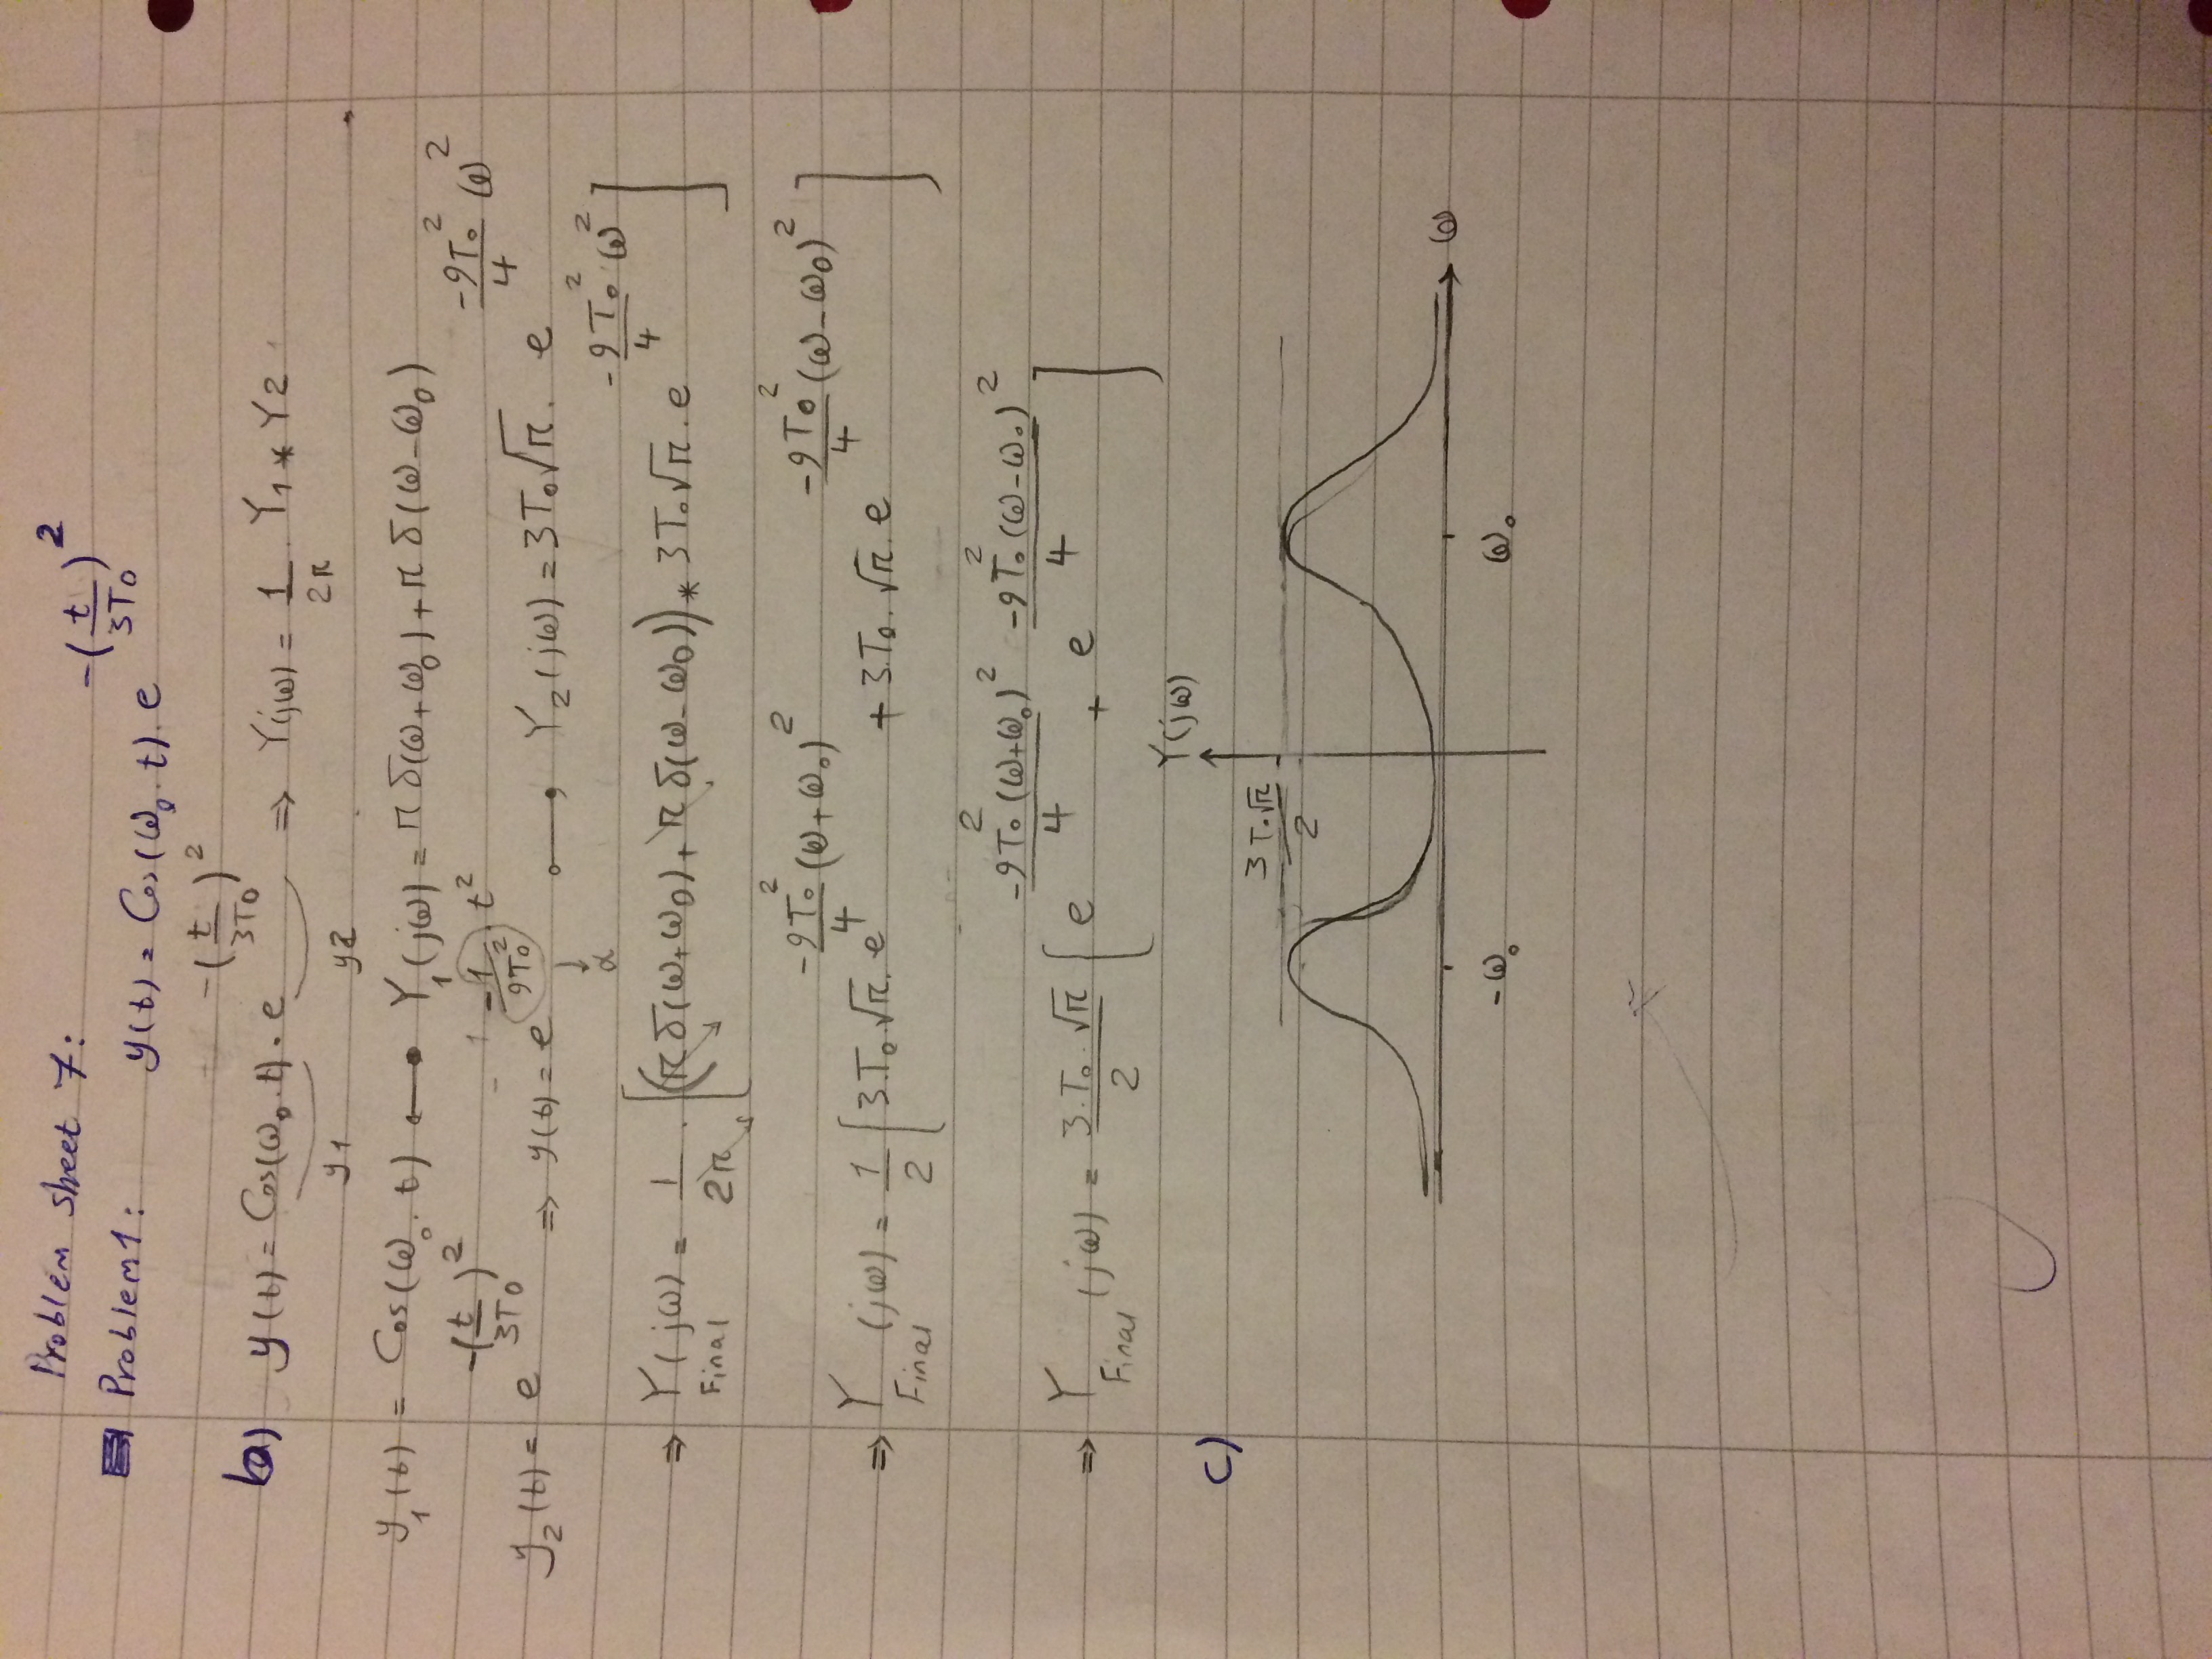 Problem sheet 7:
Problem1: y(t) = Cos(ω₀.t).e^{-(t/3T₀)²}
b) y(t) = Cos(ω₀.t).e^{-(t/3T₀)²} ⇒ Y(jω) = 1/2π . Y₁ * Y2
y1 y2
y₁(t) = Cos(ω₀.t) ←● Y₁(jω) = π δ(ω+ω₀) + π δ(ω-ω₀)
y₂(t) = e^{-(t/3T₀)²} ⇒ y(t) = e^{-1/9T₀² . t²} ○—● Y₂(jω) = 3T₀√π . e^{-9T₀²/4 ω²}
↓
α
⇒ Y Final (jω) = 1/2π . [(π δ(ω+ω₀) + π δ(ω-ω₀)) * 3T₀√π . e^{-9T₀²/4 ω²}]
⇒ Y Final (jω) = 1/2 [3.T₀.√π . e^{-9T₀²/4 (ω+ω₀)²} + 3.T₀.√π . e^{-9T₀²/4 (ω-ω₀)²}]
⇒ Y Final (jω) = 3.T₀.√π/2 [e^{-9T₀²(ω+ω₀)²/4} + e^{-9T₀²(ω-ω₀)²/4}]
c) Y(jω)
3T₀√π/2
ω
-ω₀ ω₀